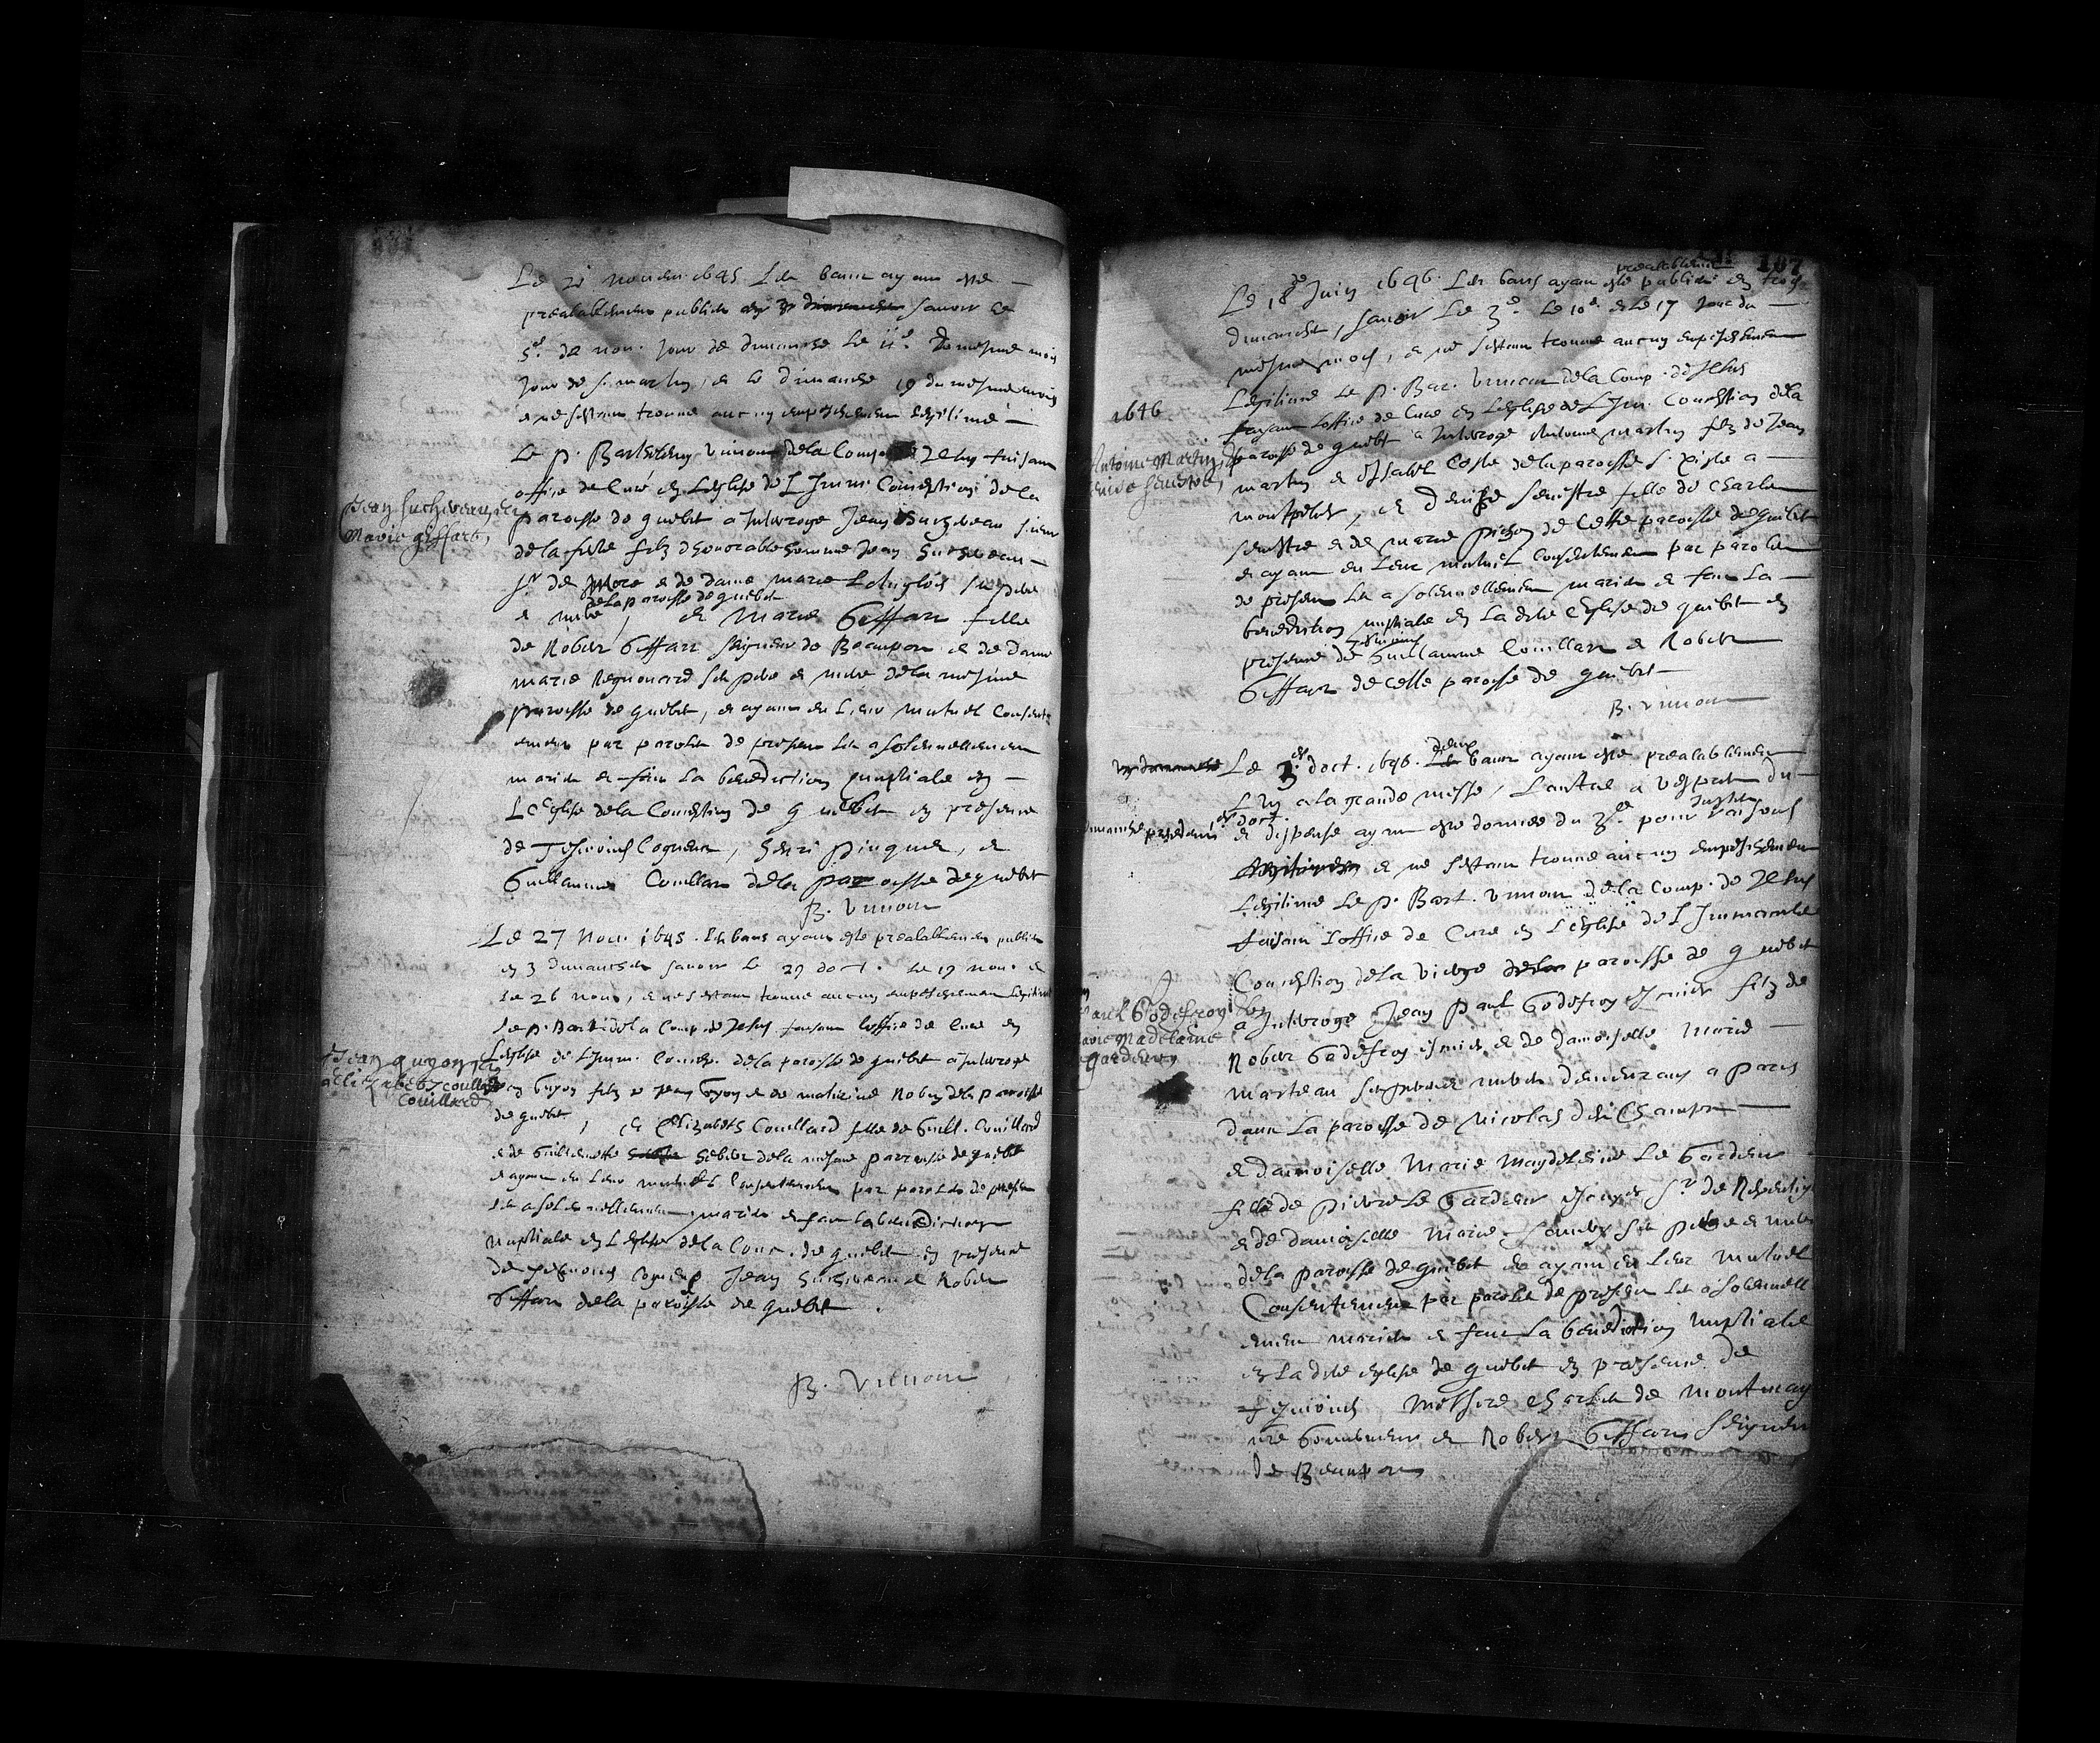 Le 21 novem. 1645 Les bans ayans esté
prealablement publies savoir le
5e. de nov. jour de dimanche le 11e. du mesme mois
jour de s. martin, et le dimanche 19 du mesme mois
et ne sestant trouvé aucun empeschement legitime
Le p. Barthelemy vimont de la Comp. de Jesus faisant
office de Curé en L'eglise de L Imm. Conception de la
Jean Juchereau et
Marie giffart
paroisse de quebek a Interrogé Jean Juchereau sieur
de la ferté filz d'honorable homme Jean Juchereau
sr. de More et de dame marie Langlois ses pere
et mere de la paroisse de quebek, et Marie Giffar fille
de Rober Giffar seigneur de Beaupor et de dame
marie Regnouard ses pere et mere de la mesme
paroisse de quebek, et ayant eu leur mutuel consent
ement par paroles de present les a solennellement
mariés et fait la benediction nuptiale en
L'Eglise de la Conception de quebek en presence
de Tesmoins Cogneus, henri pinguet, et
Guillaume Couillar de la paroisse de quebek
B. Vimont
Le 27 Nov. 1645. les bans ayans esté prealablement publies
en 3 dimanches savoir le 29 d'oct. le 19 nov. et
le 26 nov, et ne sestant trouvé aucun empeschement legitime
le p. Bart. de la Comp. de Jesus faisant l'office de Curé en
L'eglise de L'Imm. Concep. de la paroisse de quebek a Interrogé
Jean guyon et
Elizabeth couillar
Couillard
Jean Guyon filz de Jean Guyon et de mathurine Robin de la paroisse
de quebek, et Elizabeth Couillard fille de Guill. Couillard
et de Guillemette hebert de la mesme parroisse de quebek
et ayant eu leur mutuel consentement par paroles de present
les a solennellement mariés et fait la benediction
nuptiale en L'eglise de la Conc. de quebek en presence
de tesmoins cogneus Jean Juchereau et Rober
Giffar de la paroisse de quebek.
B. Vimont
107
Le 18e Juin 1646. Les bans ayant esté prealablement publiés en trois
dimanches, savoir le 3e. le 10e. et le 17 jour du
mesme mois, et ne sestant trouvé aucun empeschement
Legitime Le p. Bar. Vimont de la Comp. de Jesus
1646
faisant L'office de Curé en L'eglise de L'Im. Conception de la
Antoine Martin et
denise sevestre
paroisse de quebek a Interrogé Antoine martin filz de Jean
martin et d'Isabel Coste de la paroisse s. xiste a
montpelier, et denise sevestre fille de Charles
sevestre et de marie pichon de Cette paroisse de quebek
et ayant eu leur mutuel consentement par paroles
de present les a solennellement mariés et fait la
benediction nuptiale en La dite Eglise de quebek en
presence de tesmoins Guillaume Couillar et Rober
Giffar de cette paroisse de quebek
B. Vimont
Le d'oct. 1646. deux bans ayant esté prealablement
L'un a la grande messe, L'autre a vespres du
dimanche precedent d'oct. et dispense ayant esté donnée du 3e. pour Justes raisons
et ne sestant trouvé aucun empeschement
Legitime Le p. Bart. vimont de la Comp. de Jesus
faisant L'office de Curé en L'eglise de L'Immaculée
Conception de la vierge paroisse de quebek
paul Godefroy et
Marie Madelaine
gardeur
a Interrogé Jean Paul Godefroy escuier filz de
Rober Godefroy escuier et de damoiselle Marie
marteau ses pere et mere demeurans a paris
dans la paroisse de Nicolas des Champs
et damoiselle Marie Magdeleine Le Gardeur
fille de pierre Le Gardeur escuyer Sr. de Repentigny
et de damoiselle Marie favery ses pere et mere
de la paroisse de quebek et ayant eu leur mutuel
Consentement par paroles de present les a solennell
ement mariés et fait la benediction nuptiale
en la dite eglise de quebek en presence de
tesmoins Messire Charles de montmag
ni Gouverneur et Rober Giffar seigneur
de Beaupor